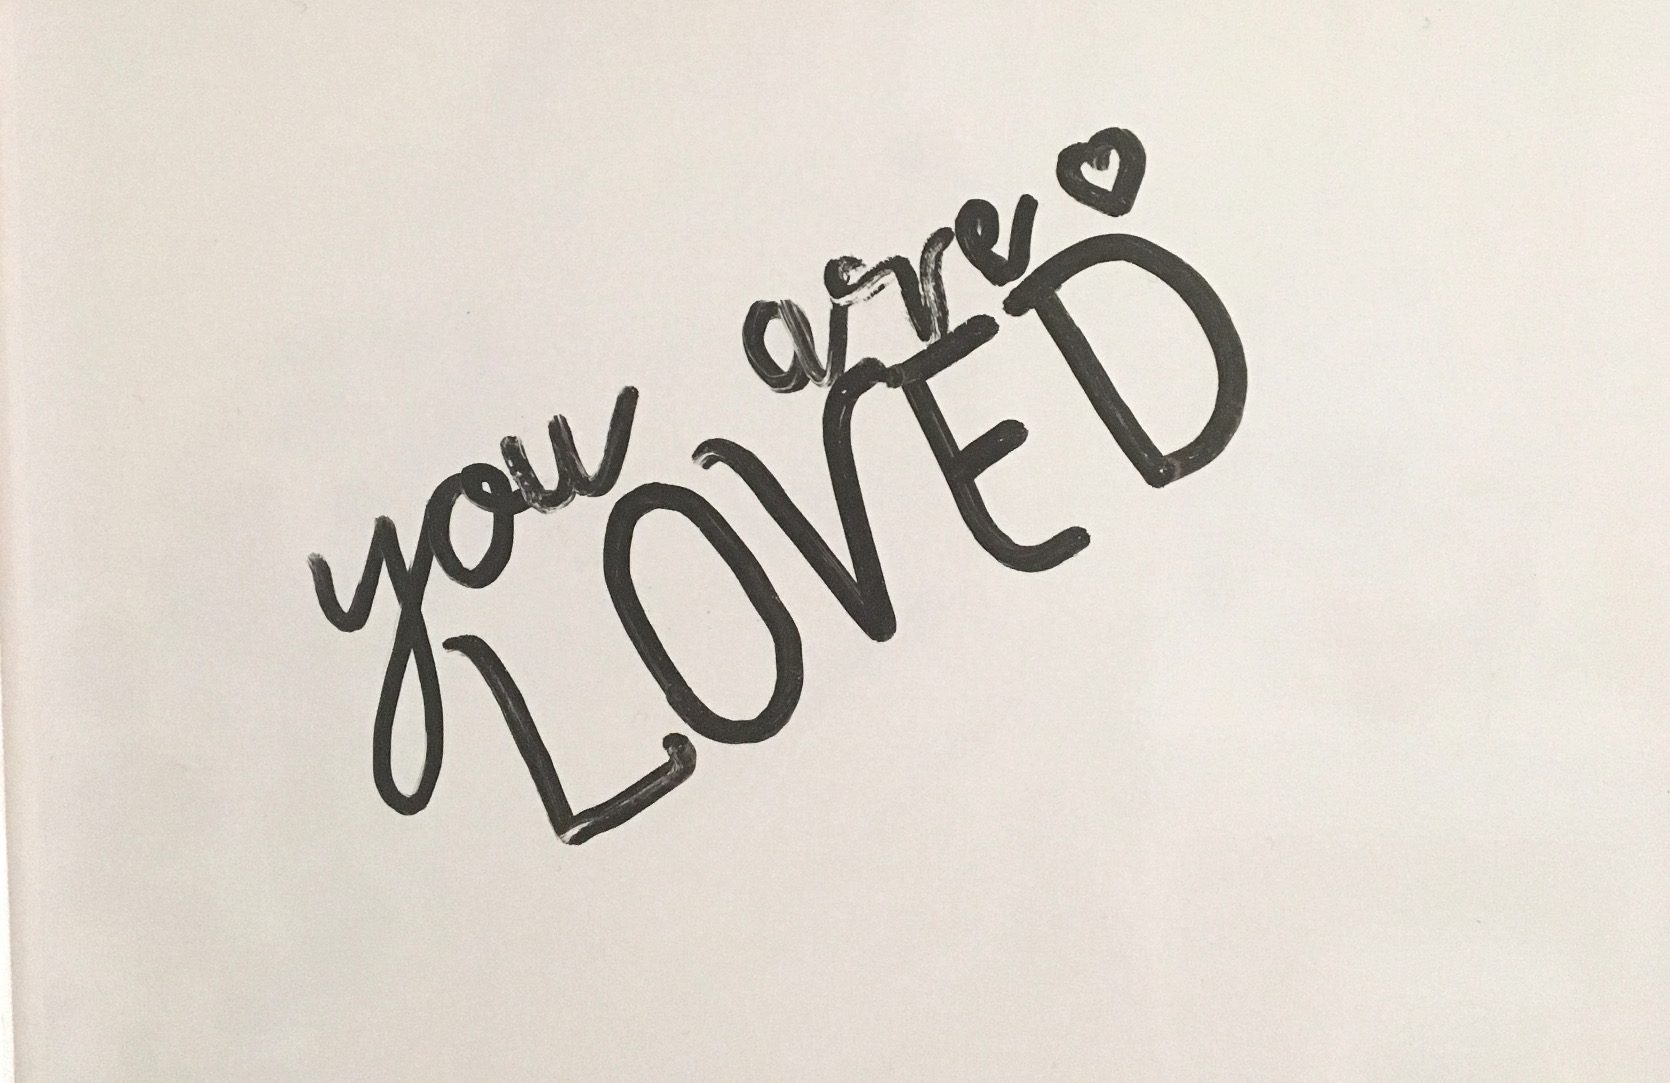 you are
LOVED